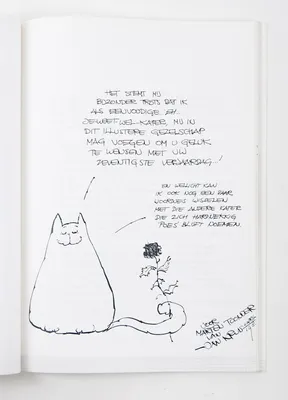 HET STEMT MIJ
BIJZONDER TROTS DAT IK
ALS EENVOUDIGE EH..
JEWEETWEL-KATER, MIJ IN
DIT ILLUSTERE GEZELSCHAP
MAG VOEGEN OM U GELUK
TE WENSEN MET UW
ZEVENTIGSTE VERJAARDAG!
EN WELLICHT KAN
IK OOK NOG EEN PAAR
WOORDJES WISSELEN
MET DIE ANDERE KATER
DIE ZICH HARDNEKKIG
POES BLIJFT NOEMEN.
VOOR
MARTEN TOONDER
VAN
JAN KRUIS